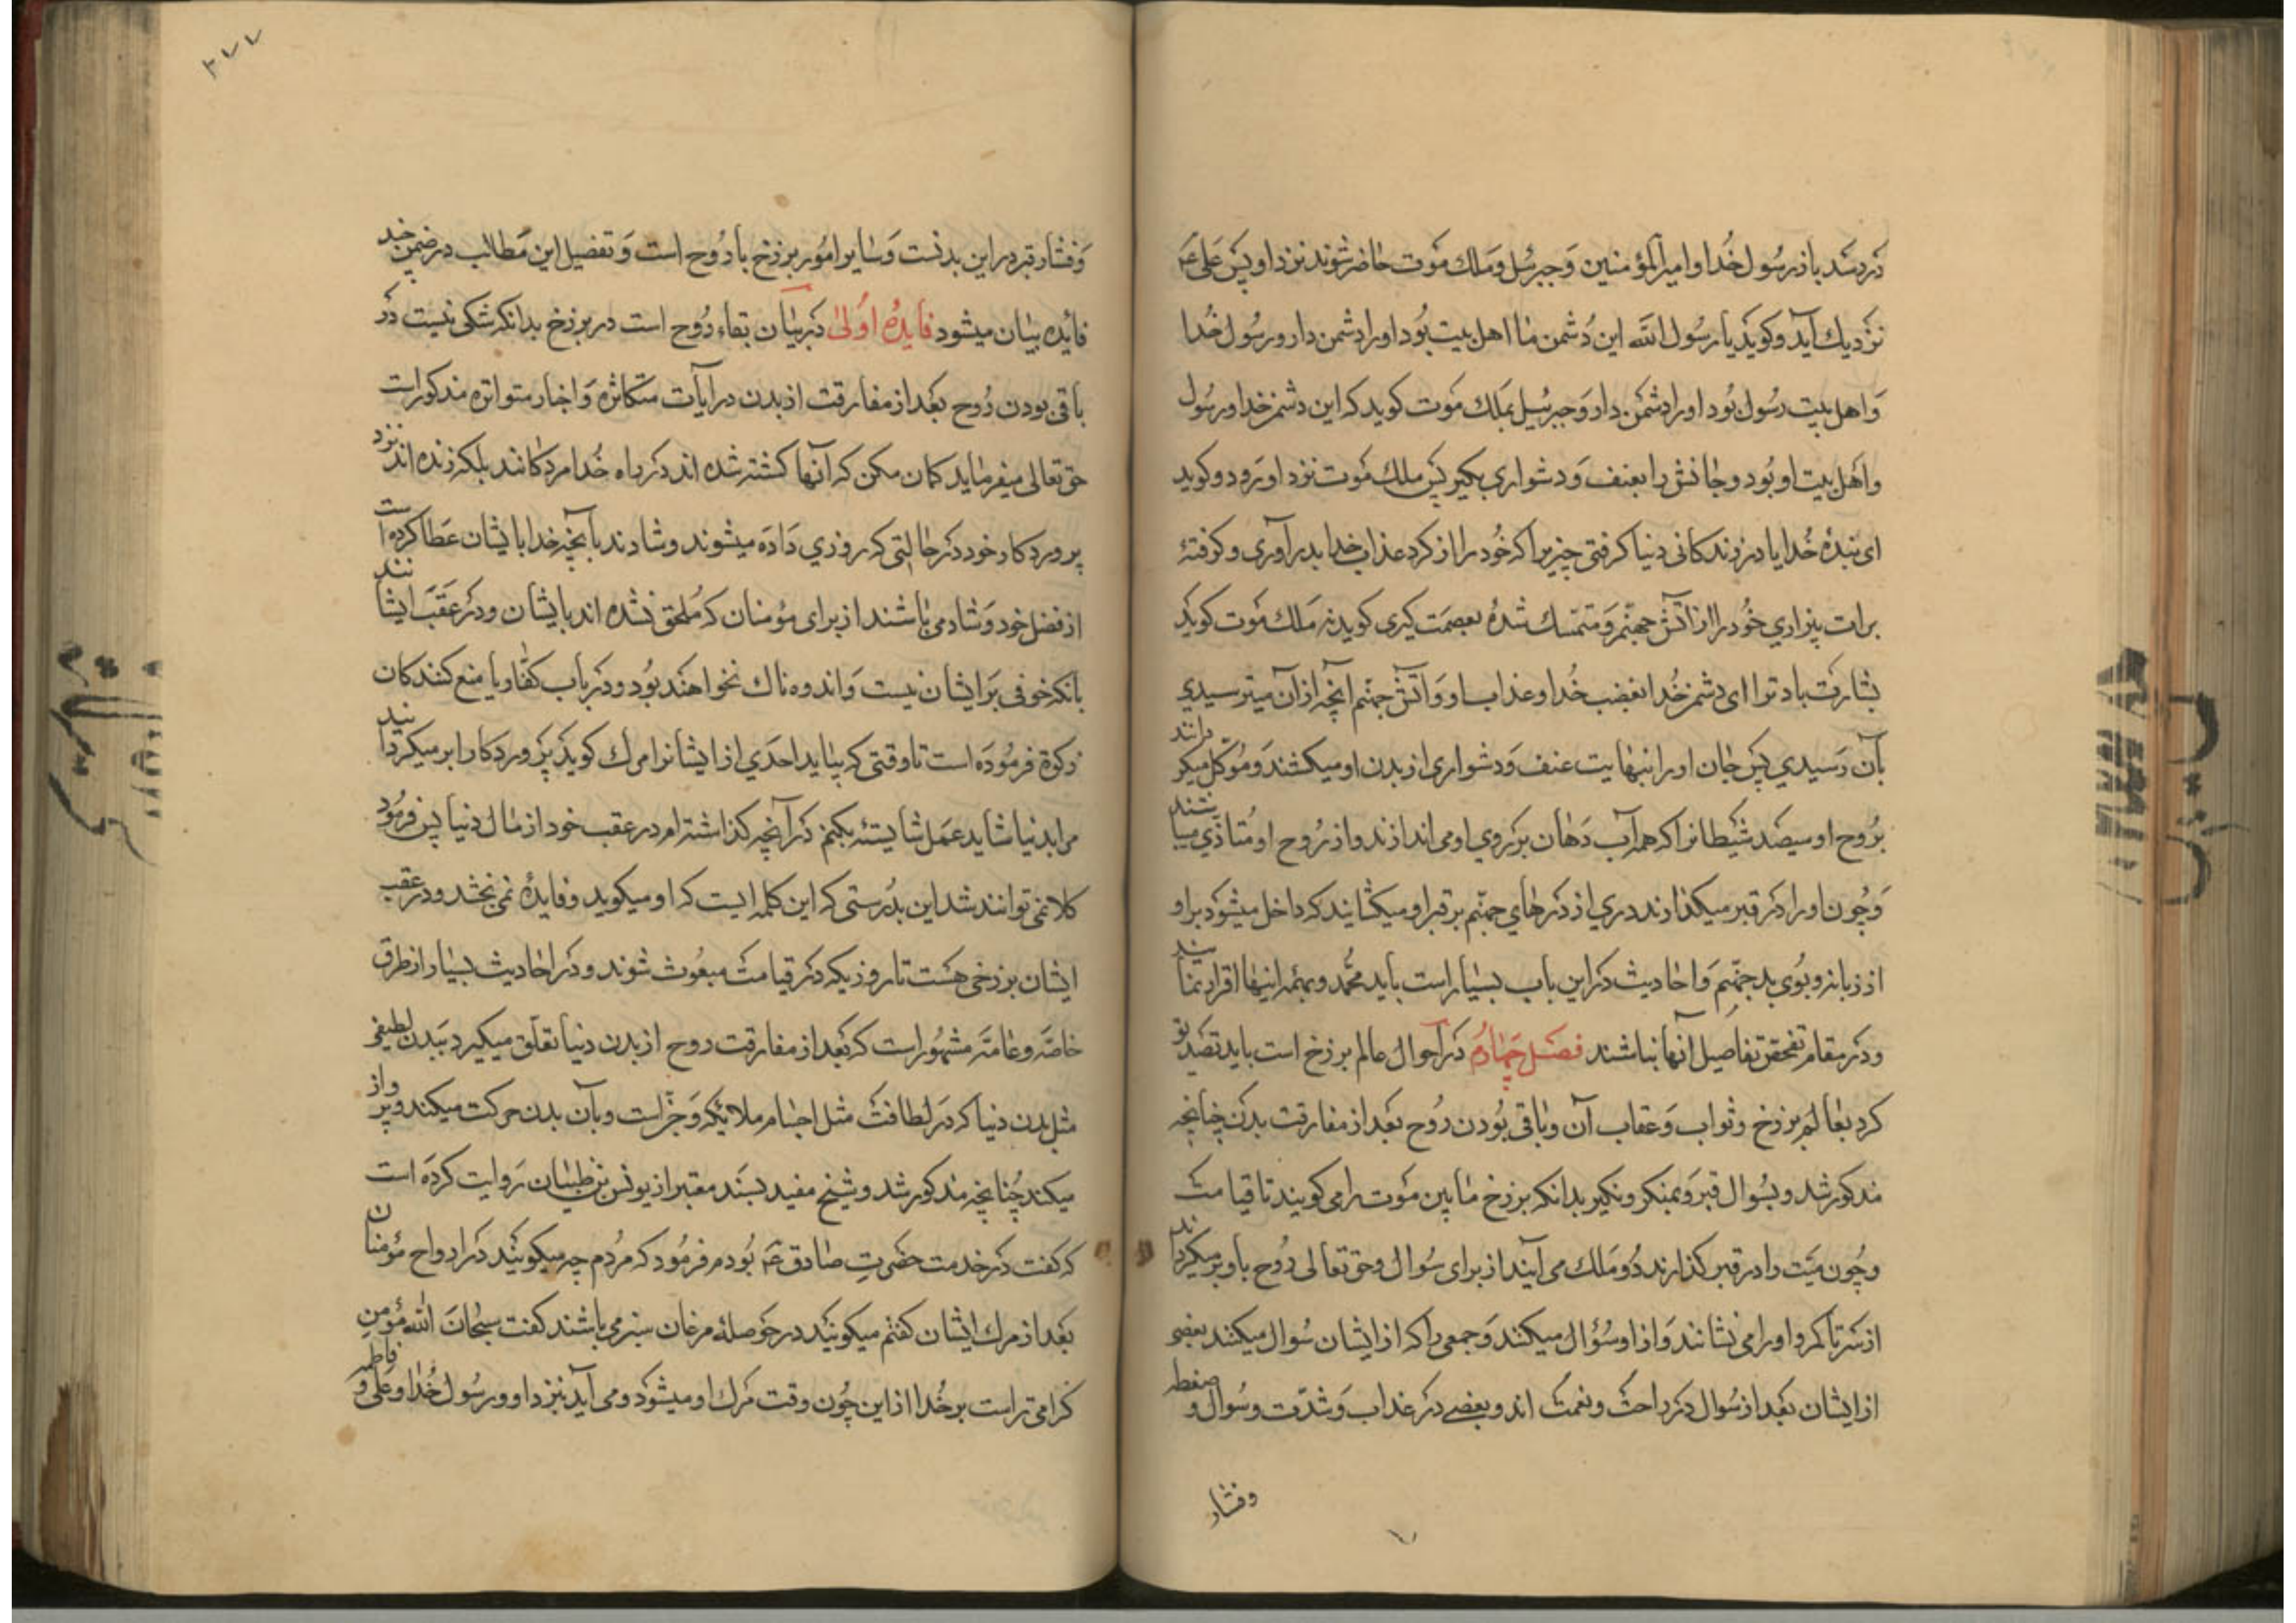 در رسد باز رسول خدا و امیر المؤمنین و جبرئیل و ملك موت حاضر شوند نزد او پس علی ع
نزدیك آید و کوید یا رسول الله این دشمن ما اهل بیت بود او را دشمن دار و رسول خدا
و اهل بیت رسول بود او را دشمن دار و جبرئیل بملك موت کوید که این دشمن خدا و رسول
و اهل بیت او بود و جانش را بعنف و دشواری بکیر پس ملك موت نزد او رود و کوید
ای بندۀ خدا ایا در زندکانی دنیا کرفتی چیزیرا که خود را از کرد عذاب خدا بدر آوری و کرفتۀ
برات بیزاری خود را از آتش جهنم و متمسك شدۀ بعصمت کبری کوید نه ملك موت کوید
بشارت باد ترا ای دشمن خدا بغضب خدا و عذاب او و آتش جهنم انچه از آن میترسیدی
بآن رسیدی پس جان او را بنهایت عنف و دشواری از بدن او میکشند و موکل میکردانند
بروح او سیصد شیطانرا که همه آب دهان بر روی او می اندازند و از روح او متاذی میباشند
و چون او را در قبر میکذارند دری از درهای جهنم بر قبر او میکشایند که داخل میشود بر او
از زبانه و بوی بد جهنم و احادیث در این باب بسیار است باید محمد و بهمۀ اینها اقرار نمایند
و در مقام تحقق تفاصیل آنها نباشند فصل چهارم در احوال عالم برزخ است باید تصدیق
کرد بعالم برزخ و ثواب و عقاب آن و باقی بودن روح بعد از مفارقت بدن چنانچه
مذکور شد و بسوال قبر و بمنکر و نکیر بدانکه برزخ ما بین موت را می کویند تا قیامت
و چون میت را در قبر کذارند دو ملك می آیند از برای سوال و حق تعالی روح باو برمیکرداند
از سر تا کمر و او را می نشانند و از او سؤال میکنند و جمعی را که از ایشان سوال میکنند بعضی
از ایشان بعد از سوال در راحت و نعمت اند و بعضی در عذاب و شدت و سوال و ضغطه
و فشار
۲۷۷
و فشار قبر در این بدنست و سایر امور برزخ با روح است و تفصیل این مطالب در ضمن چند
فائده بیان میشود فایدۀ اولی در بیان بقاء روح است در برزخ بدانکه شکی نیست در
باقی بودن روح بعد از مفارقت از بدن در آیات متکاثره و اخبار متواتره مذکور است
حق تعالی میفرماید کمان مکن که آنها کشته شده اند در راه خدا مردکانند بلکه زنده اند نزد
پروردکار خود در حالتی که روزی داده میشوند و شادند بآنچه خدا بایشان عطا کرده است
از فضل خود و شاد می باشند از برای مؤمنان که ملحق نشده اند بایشان و در عقب ایشانند
بانکه خوفی بر ایشان نیست و اندوه ناك نخواهند بود و در باب کفار یا منع کنندکان
زکوة فرموده است تا وقتی که بیاید احدی از ایشانرا مرك کوید پروردکارا برمیکردانید
مرا بدنیا شاید عمل شایسته بکنم در آنچه کذاشته ام در عقب خود از مال دنیا پس فرمود
کلا نمی توانند شد این بدرستی که این کلمه ایست که او میکوید و فایدۀ نمی بخشد و در عقب
ایشان برزخی هست تا روزیکه در قیامت مبعوث شوند و در احادیث بسیار از طرق
خاصه و عامه مشهور است که بعد از مفارقت روح از بدن دنیا تعلق میکیرد ببدن لطیفی
مثل بدن دنیا که در لطافت مثل اجسام ملائکه و جن است و بآن بدن حرکت میکند و پرواز
میکند چنانچه مذکور شد و شیخ مفید بسند معتبر از یونس بن ظبیان روایت کرده است
که کفت در خدمت حضرت صادق ع بودم فرمود که مردم چه میکویند در ارواح مؤمنان
بعد از مرك ایشان کفتم میکویند در حوصلۀ مرغان سبز می باشند کفت سبحان الله مؤمن
کرامی تر است بر خدا از این چون وقت مرك او میشود و می آید بنزد او و رسول خدا و علی و فاطمه